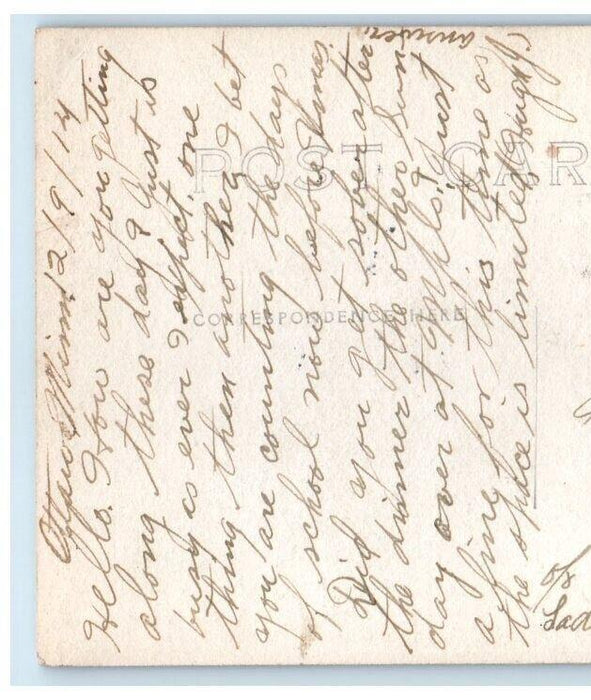 Ottawa Minn 12/9/14
Hello. How are you getting
along these days? Just as
busy as ever I expect, one
thing then another. I bet
you are counting the days
of school now before Xmas.
Did you get sober after
the dinner the other Sun
day over at I just
a fine for this time as
the space is limited
answer.
POST CAR
CORRESPONDENCE HERE
Lad